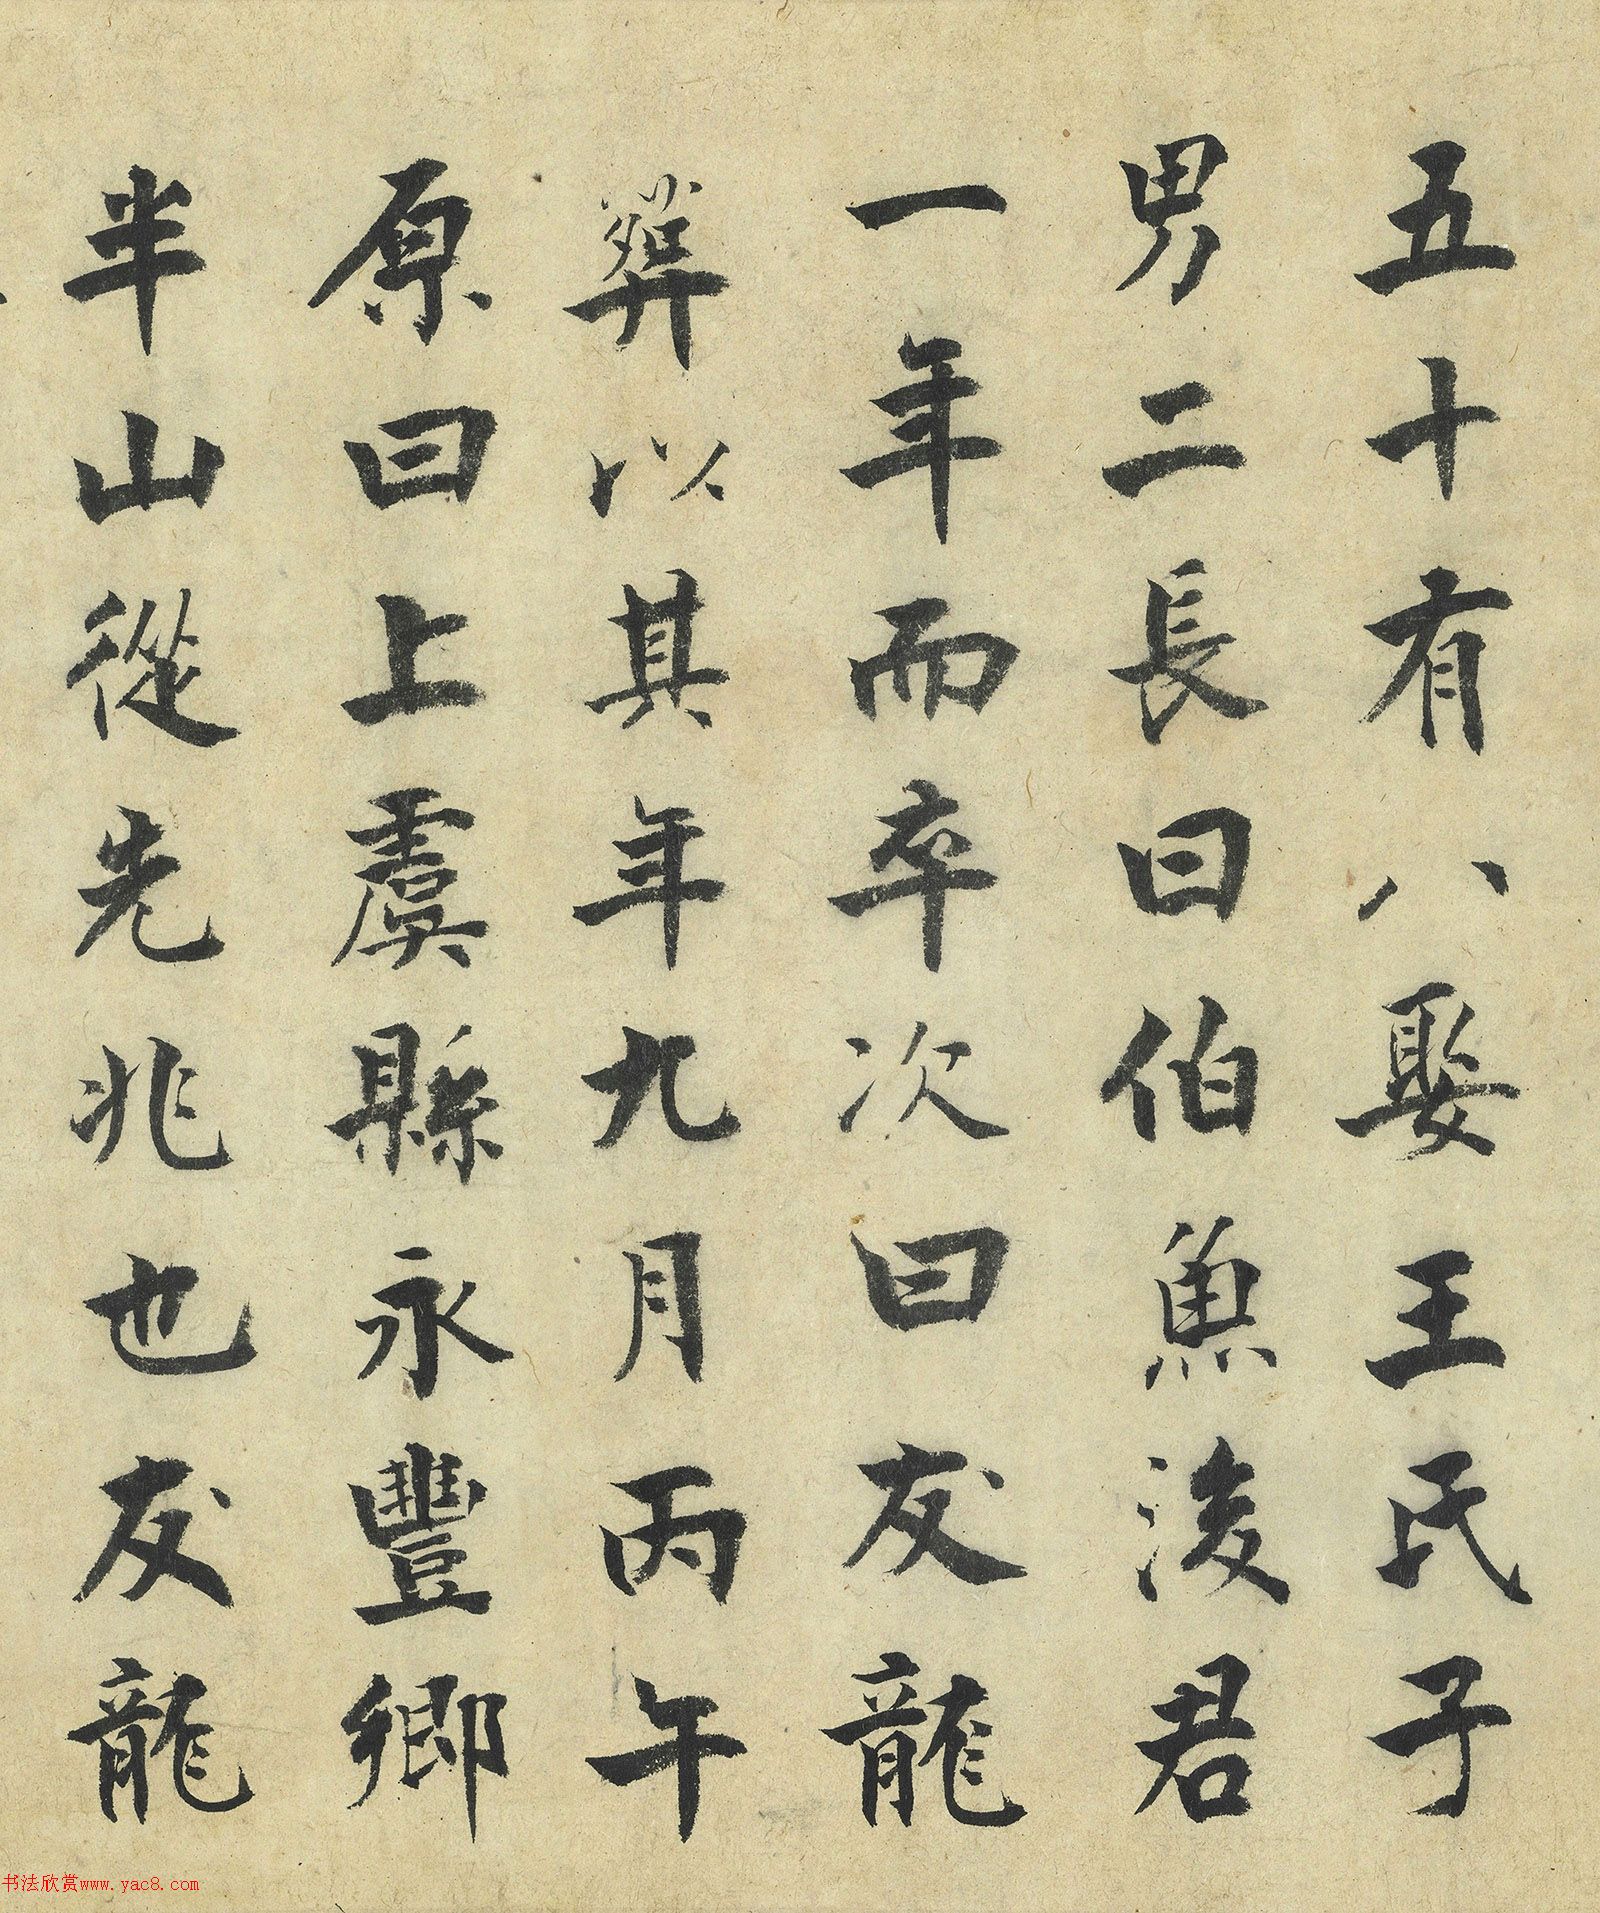 五十有八娶王氏子
男二長曰伯魚後君
一年而卒次曰友龍
葬以其年九月丙午
原曰上虞縣永豐鄉
半山從先兆也友龍
书法欣赏www.yac8.com